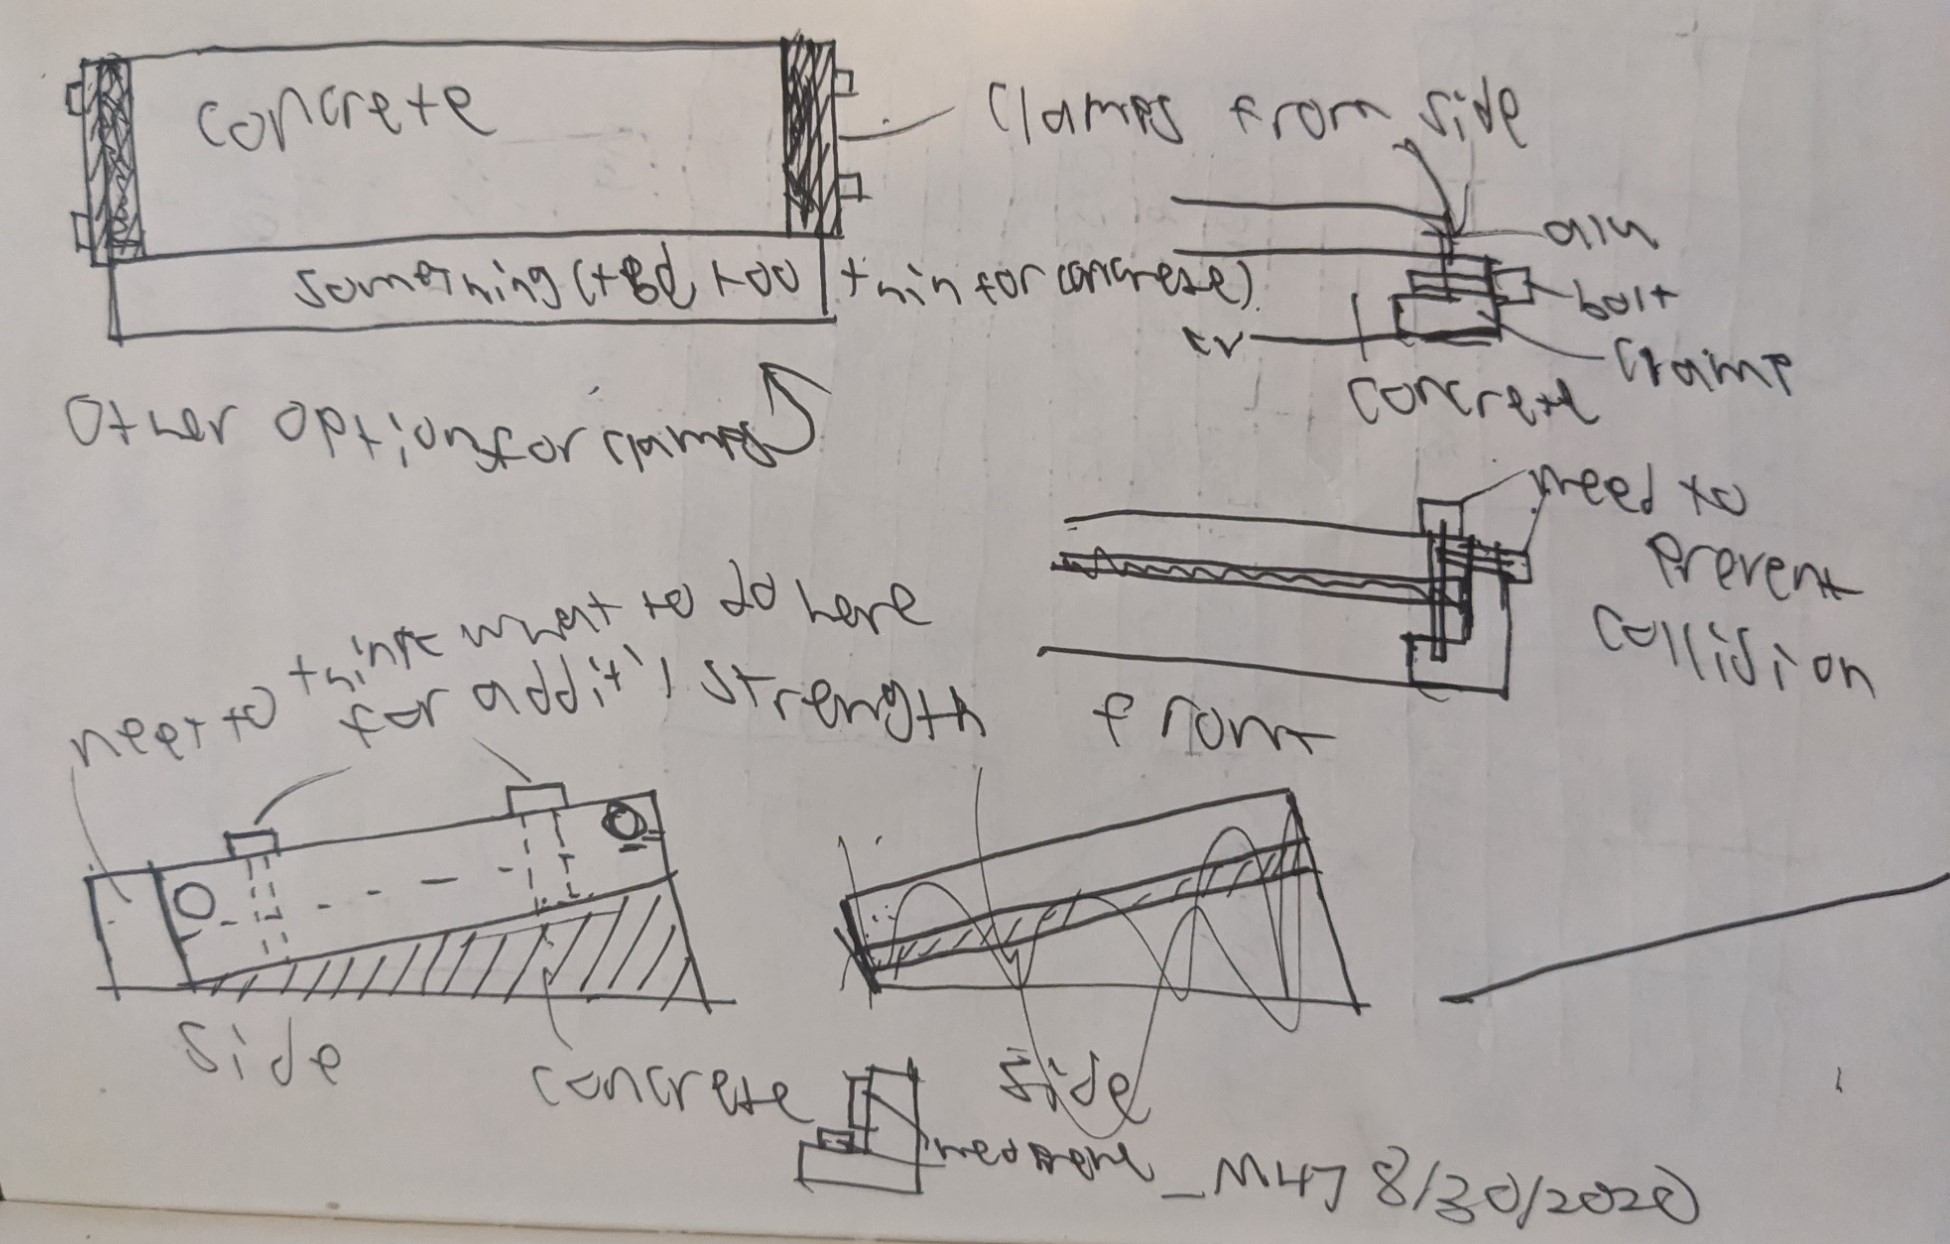 concrete
Clamps from side
alu
something (tBd, too thin for concrete)
bolt
Clamp
concrete
Other options for clamps
need to
prevent
collision
need to think what to do here
for addit'l strength
front
side
concrete
side
neoprene
8/30/2020